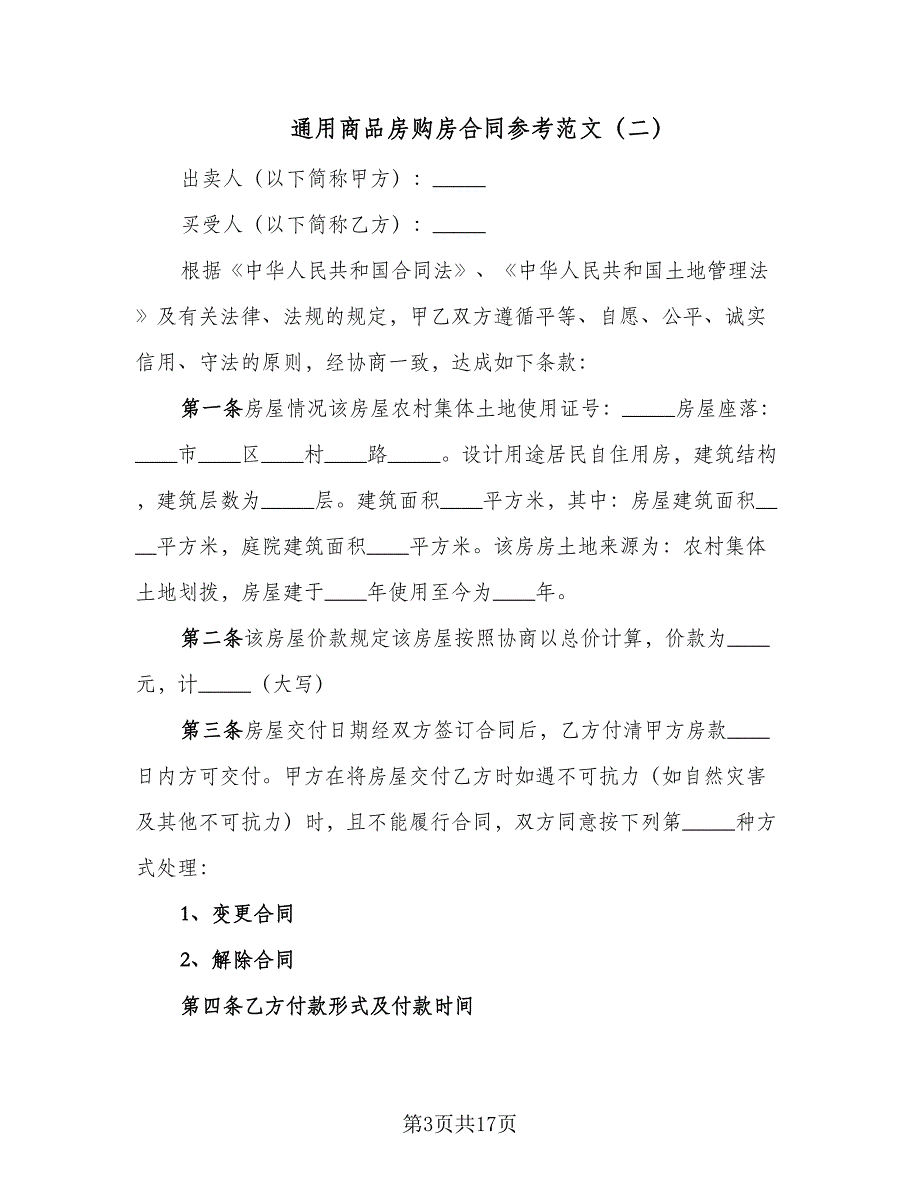 通用商品房购房合同参考范文（二）
出卖人（以下简称甲方）：_____
买受人（以下简称乙方）：_____
根据《中华人民共和国合同法》、《中华人民共和国土地管理法
》及有关法律、法规的规定，甲乙双方遵循平等、自愿、公平、诚实
信用、守法的原则，经协商一致，达成如下条款：
第一条房屋情况该房屋农村集体土地使用证号：_____房屋座落：
____市____区____村____路_____。设计用途居民自住用房，建筑结构
，建筑层数为_____层。建筑面积____平方米，其中：房屋建筑面积__
__平方米，庭院建筑面积____平方米。该房房土地来源为：农村集体
土地划拨，房屋建于____年使用至今为____年。
第二条该房屋价款规定该房屋按照协商以总价计算，价款为____
元，计_____（大写）
第三条房屋交付日期经双方签订合同后，乙方付清甲方房款____
日内方可交付。甲方在将房屋交付乙方时如遇不可抗力（如自然灾害
及其他不可抗力）时，且不能履行合同，双方同意按下列第_____种方
式处理：
1、变更合同
2、解除合同
第四条乙方付款形式及付款时间
第3页共17页